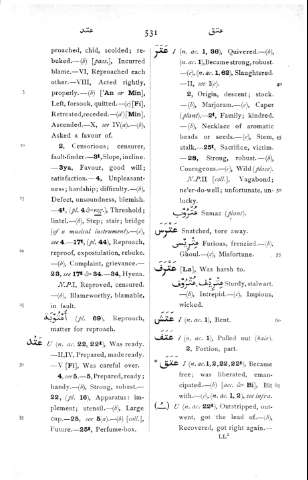 عتق
531
عتق
proached, chid, scolded; re-
buked.—(b) [pass.], Incurred
blame.—VI, Reproached each
other.—VIII, Acted rightly,
properly.—(b) ['An or Min],
Left, forsook, quitted.—(c) [Fi],
Retreated, receded.—(d) [Min],
Ascended.—X, see IV(a).—(b),
Asked a favour of.
2, Censorious; censurer,
fault-finder—3t, Slope, incline.
—3ya, Favour, good will;
satisfaction.— 4, Unpleasant-
ness; hardship; difficulty.—(b),
Defect, unsoundness, blemish.
—4t, (pl. 4 &), Threshold;
lintel.—(b), Step; stair; bridge
(of a musical instrument).—(c),
see 4.—17t, (pl. 44), Reproach,
reproof, expostulation, rebuke.
—(b), Complaint, grievance.—
23, see 17t &—34, Hyena.
N.P.I, Reproved, censured.
—(b), Blameworthy, blamable,
in fault.
(pl. 69), Reproach,
matter for reproach.
عتد U (n. ac. 22, 22t), Was ready.
—II.IV, Prepared, made ready.
—V [Fi], Was careful over.
4, see 5.—5, Prepared, ready;
handy.—(b), Strong, robust.—
22, (pl. 16), Apparatus; im-
plement; utensil.—(b), Large
cup.—25, see 5(a).—(b) [coll.],
Future.—25t, Perfume-box.
عتر I (n. ac. 1, 36), Quivered.—(b),
(n. ac. 1), Became strong, robust.
—(c), (n. ac. 1, 62), Slaughtered.
—II, see I(c).
2, Origin, descent; stock.
—(b), Marjoram.—(c), Caper
(plant).—2t, Family; kindred.
—(b), Necklace of aromatic
beads or seeds.—(c), Stem,
stalk.—25t, Sacrifice, victim.
—28, Strong, robust.—(b),
Courageous.—(c), Wild (place).
N.P.II [coll.], Vagabond;
ne'er-do-well; unfortunate, un-
lucky.
عترب Sumac (plant).
عترس Snatched, tore away.
عتريس Furious, frenzied.—(b),
Ghoul.—(c), Misfortune.
عترف [La], Was harsh to.
عتريف, عتروف Sturdy, stalwart.
—(b), Intrepid.—(c), Impious,
wicked.
عتش I (n. ac. 1), Bent.
عتف I (n. ac. 1), Pulled out (hair).
2, Portion, part.
*عتق I (n. ac. 1, 2, 22, 22t), Became
free; was liberated, eman-
cipated.—(b) [acc. & Bi], Bit
with.—(c), (n. ac. 1, 2), see infra.
U (n. ac. 22t), Outstripped, out-
went, got the lead of.—(b),
Recovered, got right again.—
LL²